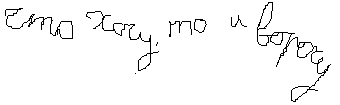 что хочу, то и ворочу